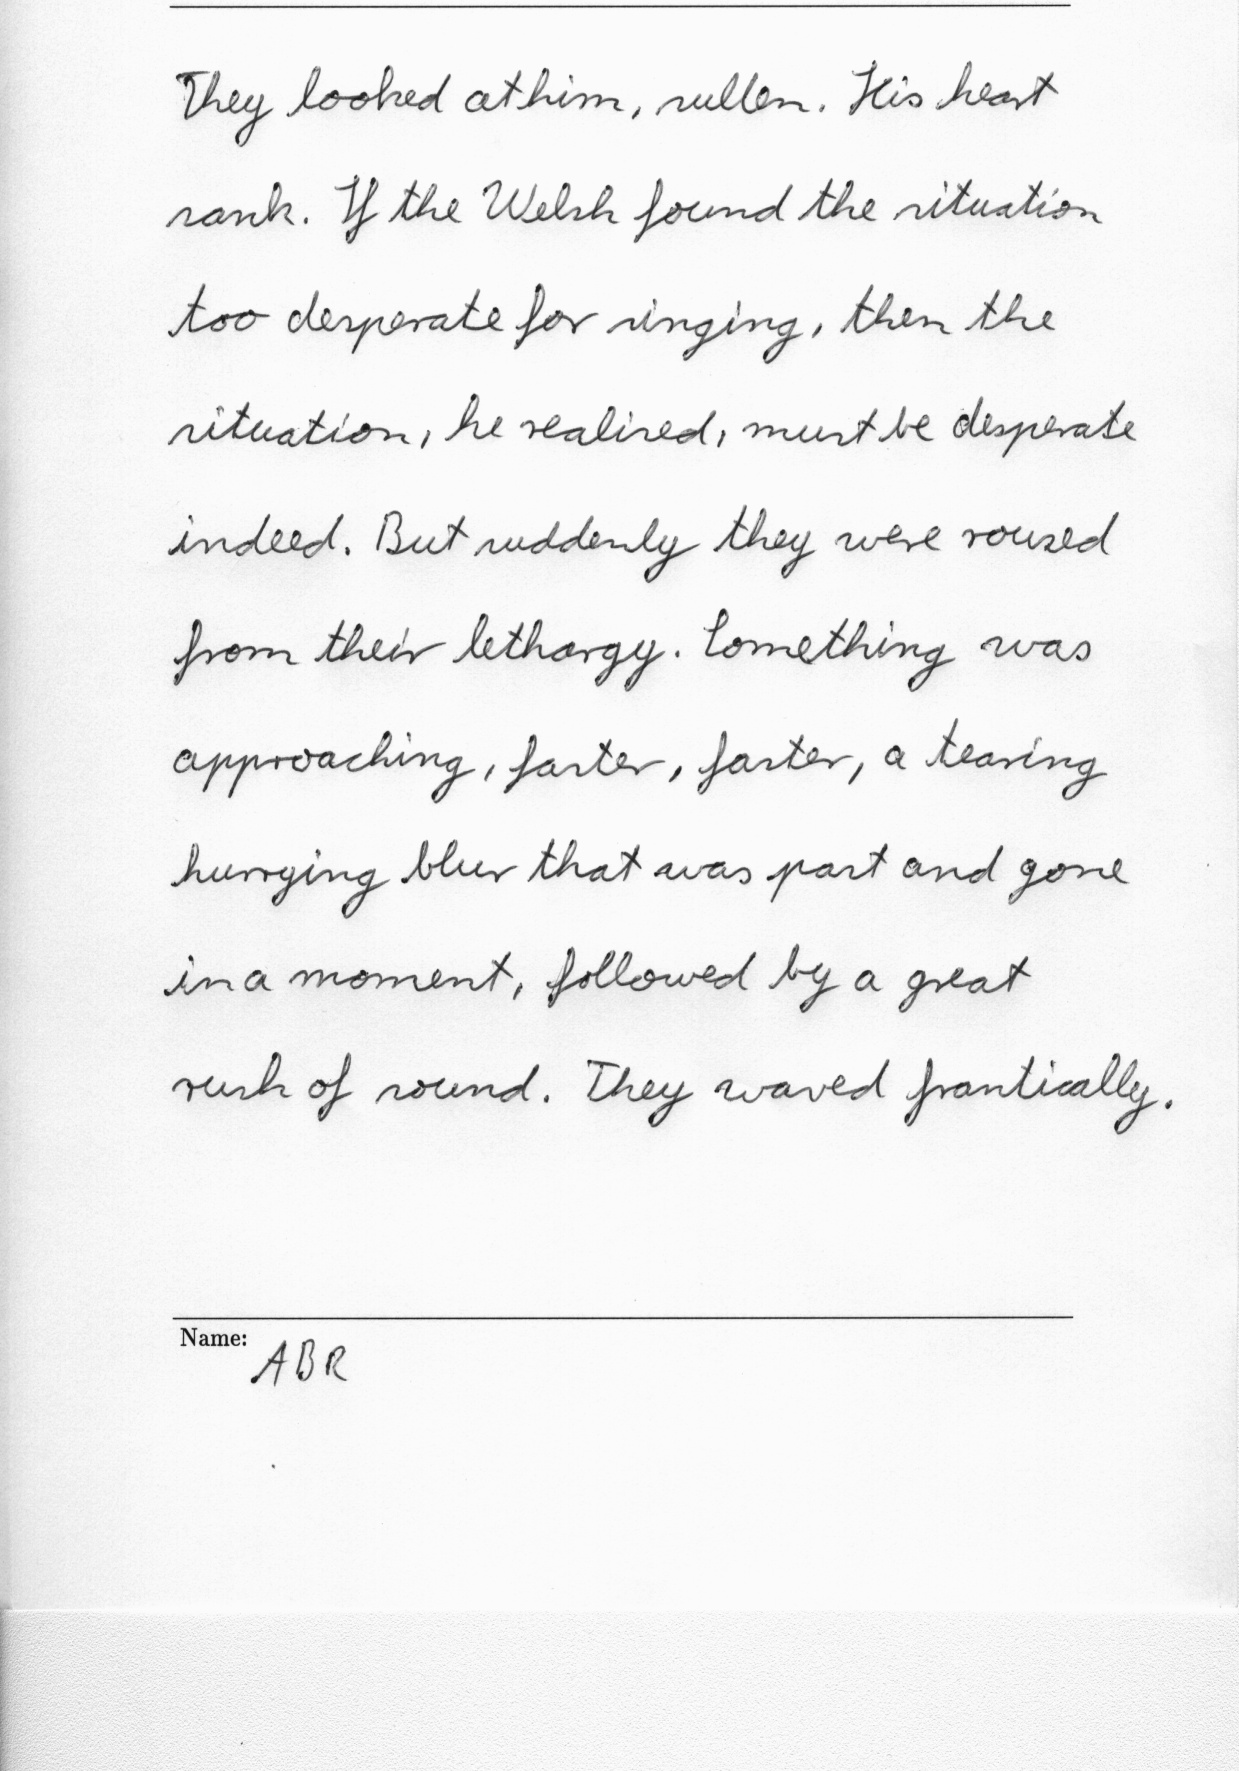 They looked at him, sullen. His heart
sank. If the Welsh found the situation
too desperate for singing, then the
situation, he realised, must be desperate
indeed. But suddenly they were roused
from their lethargy. Something was
approaching, faster, faster, a tearing
hurrying blur that was past and gone
in a moment, followed by a great
rush of sound. They waved frantically.
Name:
ABR